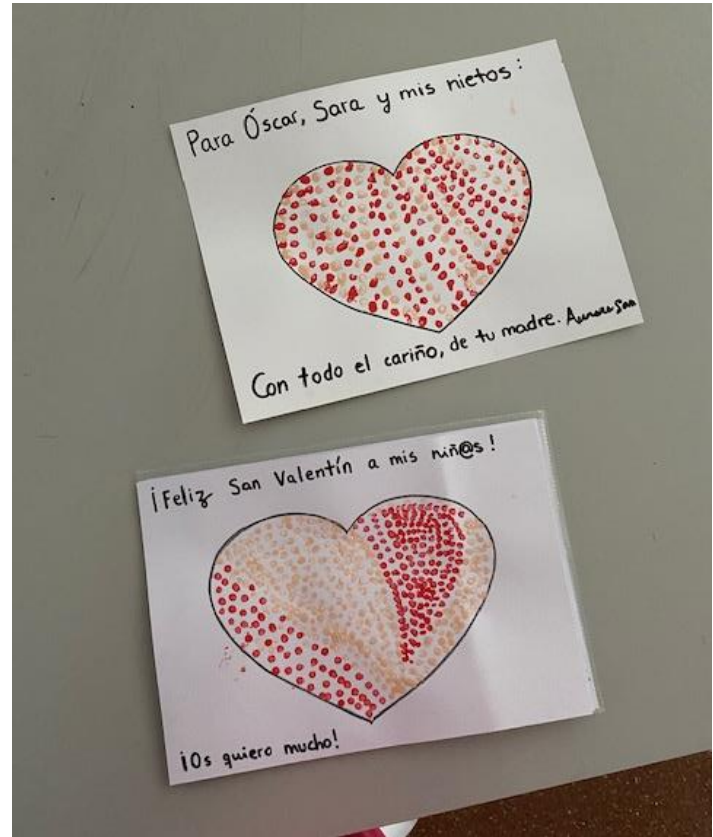 Para Óscar, Sara y mis nietos:
Con todo el cariño, de tu madre.
¡Feliz San Valentín a mis niñ@s!
¡Os quiero mucho!